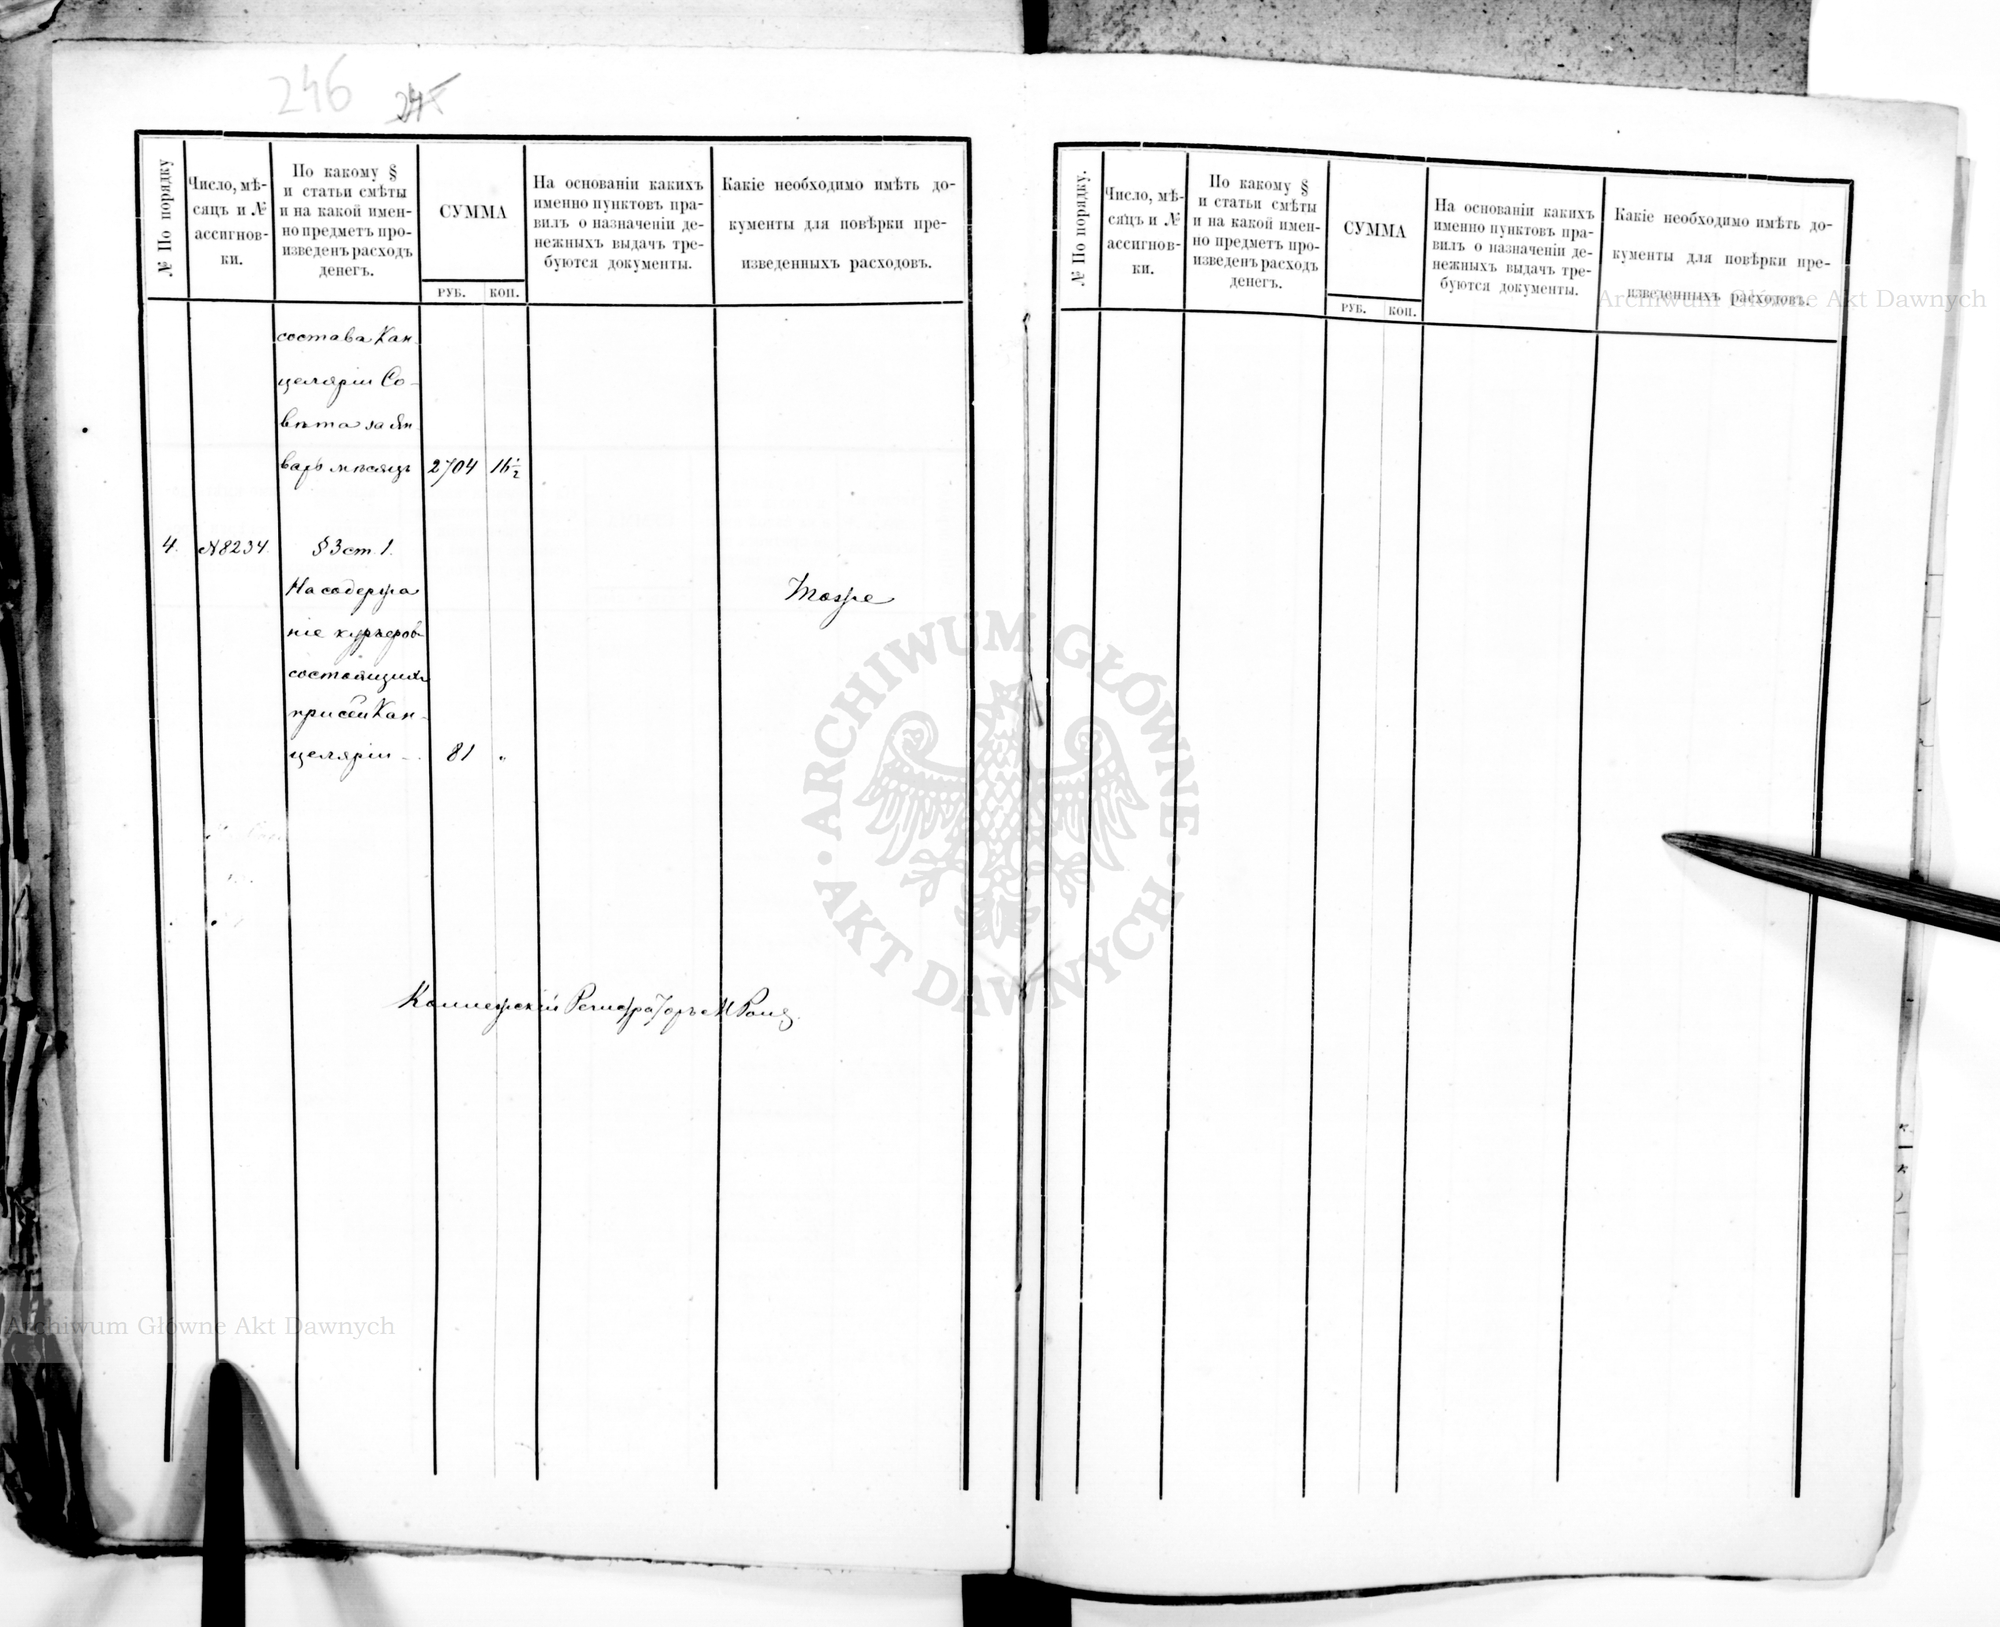 246
245
№ По порядку
Число, мѣ-
сяцъ и №
ассигнов-
ки.
По какому §
и статьи смѣты
и на какой имен-
но предметъ про-
изведенъ расходъ
денегъ.
СУММА
РУБ. КОП.
На основаніи какихъ
именно пунктовъ пра-
вилъ о назначеніи де-
нежныхъ выдачъ тре-
буются документы.
Какіе необходимо имѣть до-
кументы для повѣрки пре-
изведенныхъ расходовъ.
состава Кан
целяріи Со-
вѣта за Ян
варь мѣсяцъ 2704 16½
4. №8234. § 3 ст. 1.
На содержа
ніе курьеровъ
состоящихъ
при сей Кан-
целяріи - . 81 "
Тоже
Коллежскій Регистраторъ
№ По порядку.
Число, мѣ-
сяцъ и №
ассигнов-
ки.
По какому §
и статьи смѣты
и на какой имен-
но предметъ про-
изведенъ расходъ
денегъ.
СУММА
РУБ. КОП.
На основаніи какихъ
именно пунктовъ пра-
вилъ о назначеніи де-
нежныхъ выдачъ тре-
буются документы.
Какіе необходимо имѣть до-
кументы для повѣрки пре-
изведенныхъ расходовъ.
Archiwum Główne Akt Dawnych
ARCHIWUM GŁÓWNE
AKT DAWNYCH
Archiwum Główne Akt Dawnych